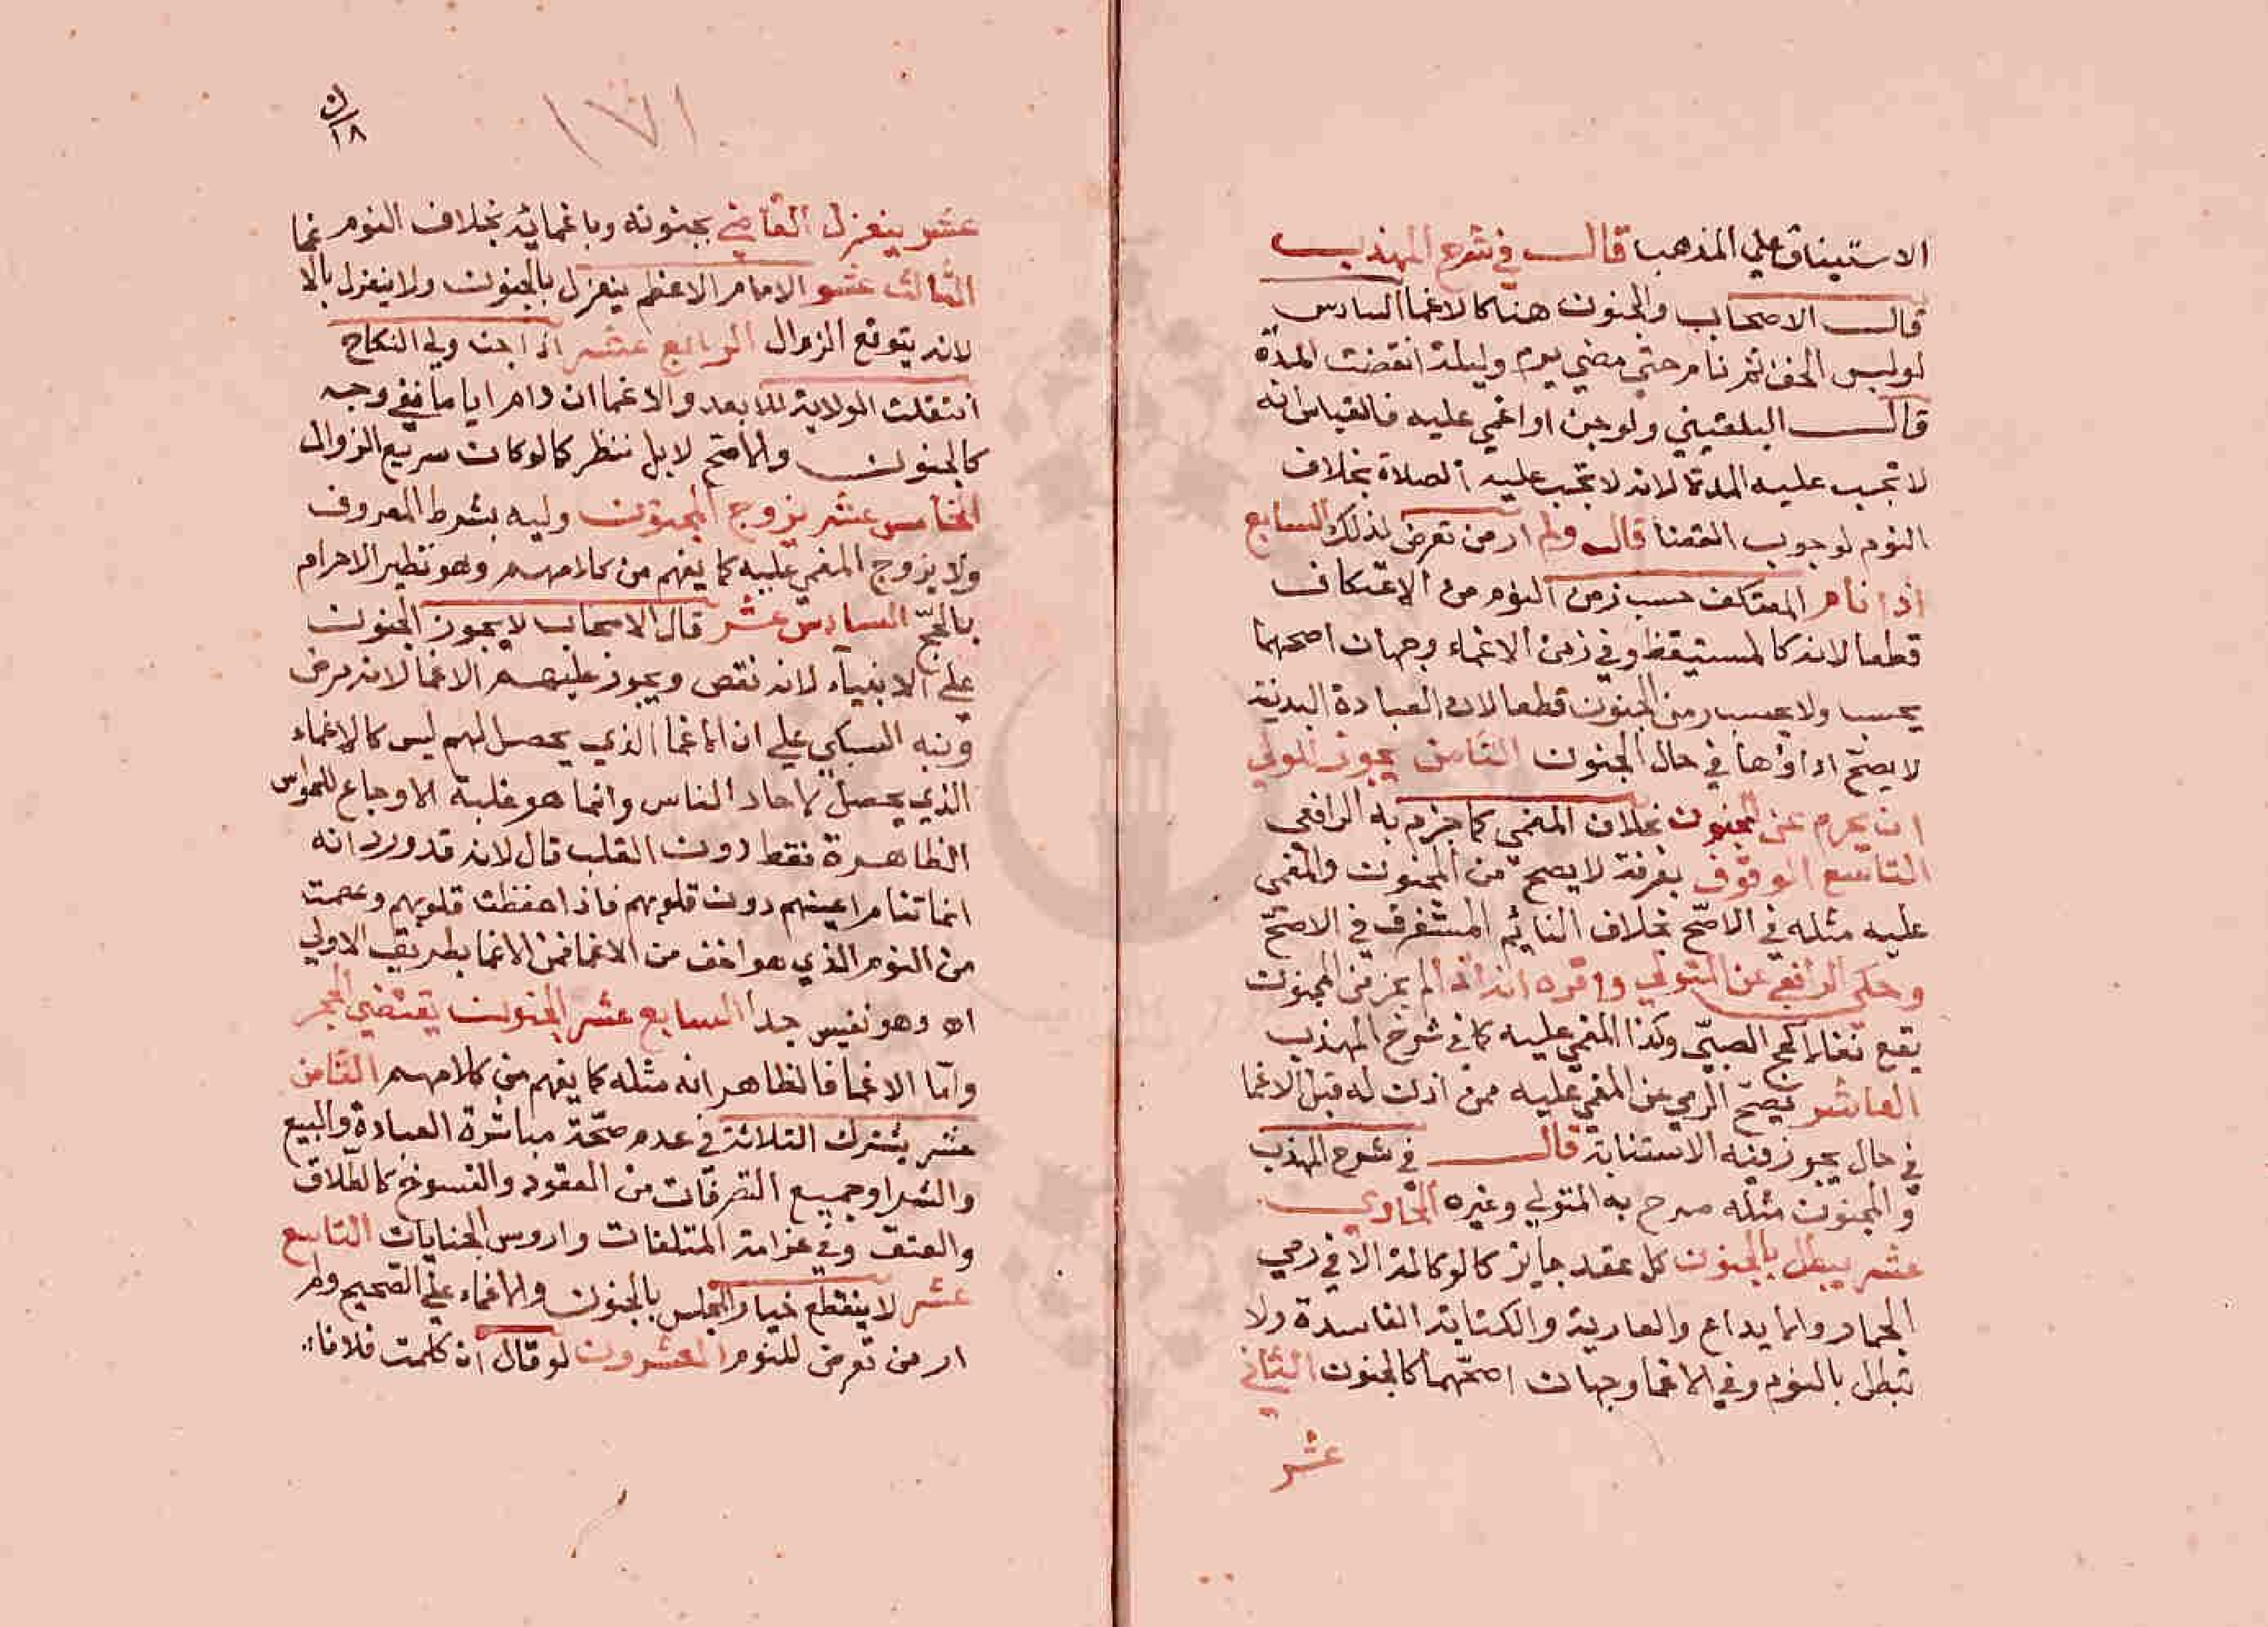 الاستيناف علي المذهب قالــ في شرح المهذب
قالــ الاصحاب والجنون هنا كالاغما السادس
لو لبس الخف ثم نام حتي مضي يوم وليلة انقضت المدة
قالــ البلقيني ولو جن او اغمي عليه فالقياس انه
لا تحسب عليه المدة لانه لا تجب عليه الصلاة بخلاف
النوم لوجوب القضا قال ولم ار من تعرض لذلك السابع
اذا نام المعتكف حسب زمن النوم من الاعتكاف
قطعا لانه كالمستيقظ وفي زمن الاغماء وجهان اصحهما
يحسب ولا يحسب زمن الجنون قطعا لان العبادة البدنية
لا يصح اداؤها في حال الجنون الثامن يجوز للولي
ان يحرم عن المجنون بخلاف المغمي كما جزم به الرافعي
التاسع الوقوف بعرفة لا يصح من المجنون والمغمي
عليه مثله في الاصح بخلاف النائم المستغرق في الاصح
وحكي الرافعي عن المتولي واقره انه اذا لم يجز من المجنون
يقع نفلا كحج الصبي وكذا المغمي عليه كما في شرح المهذب
العاشر يصح الرمي عن المغمي عليه ممن اذن له قبل الاغما
في حال يجوز فيه الاستنابة قالــ في شرح المهذب
والمجنون مثله صرح به المتولي وغيره الحادي
عشر يبطل بالجنون كل عقد جايز كالوكالة الا في رمي
الجمار والايداع والعارية والكتابة الفاسدة ولا
تبطل بالنوم وفي الاغما وجهان اصحهما كالجنون الثاني
عشر
١٧١
١٨
عشر ينعزل القاضي بجنونه وباغمائه بخلاف النوم غما
الثالث عشر الامام الاعظم ينعزل بالجنون ولا ينعزل بالا
لانه يتوقع الزوال الرابع عشر اذا جن ولي النكاح
انتقلت الولاية للابعد والاغما ان دام اياما ففي وجه
كالجنون والاصح لا بل ننظر كما لو كان سريع الزوال
الخامس عشر يزوج المجنون وليه بشرط المعروف
ولا يزوج المغمي عليه كما يفهم من كلامهم وهو نظير الاحرام
بالحج السادس عشر قال الاصحاب لا يجوز الجنون
علي الانبياء لانه نقص ويجوز عليهم الاغما لانه مرض
ونبه السبكي علي ان الاغما الذي يحصل لهم ليس كالاغماء
الذي يحصل لاحاد الناس وانما هو غلبة الاوجاع للحواس
الظاهرة فقط دون القلب قال لانه قد ورد انه
انما تنام اعينهم دون قلوبهم فاذا حفظت قلوبهم وعصمت
من النوم الذي هو اخف من الاغما فمن الاغما بطريق الاولي
اه وهو نفيس جدا السابع عشر الجنون يقتضي الحجر
واما الاغما فالظاهر انه مثله كما يفهم من كلامهم الثامن
عشر يشترك الثلاثة في عدم صحة مباشرة العبادة والبيع
والشرا وجميع التصرفات من العقود والفسوخ كالطلاق
والعتق وفي غرامة المتلفات واروس الجنايات التاسع
عشر لا ينقطع خيار المجلس بالجنون والاغماء علي الصحيح ولم
ار من تعرض للنوم العشرون لو قال ان كلمت فلانا